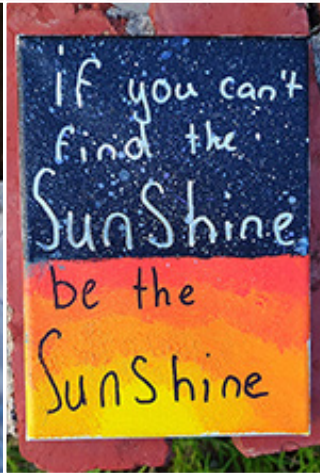 if you can't
find the
SunShine
be the
SunShine